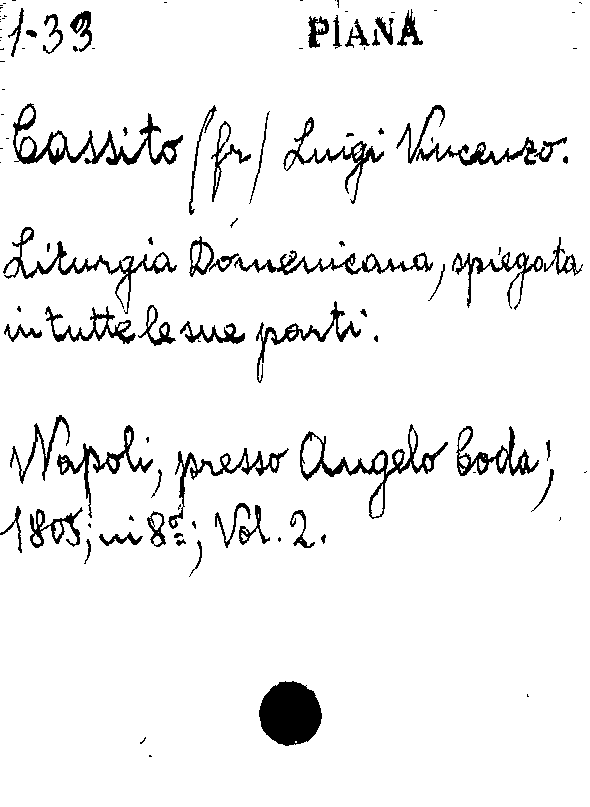 1-33 PIANA
Cassito (fr) Luigi Vincenzo.
Liturgia Domenicana, spiegata
in tutte le sue parti.
Napoli, presso Angelo Coda;
1805; in 8º; Vol. 2.